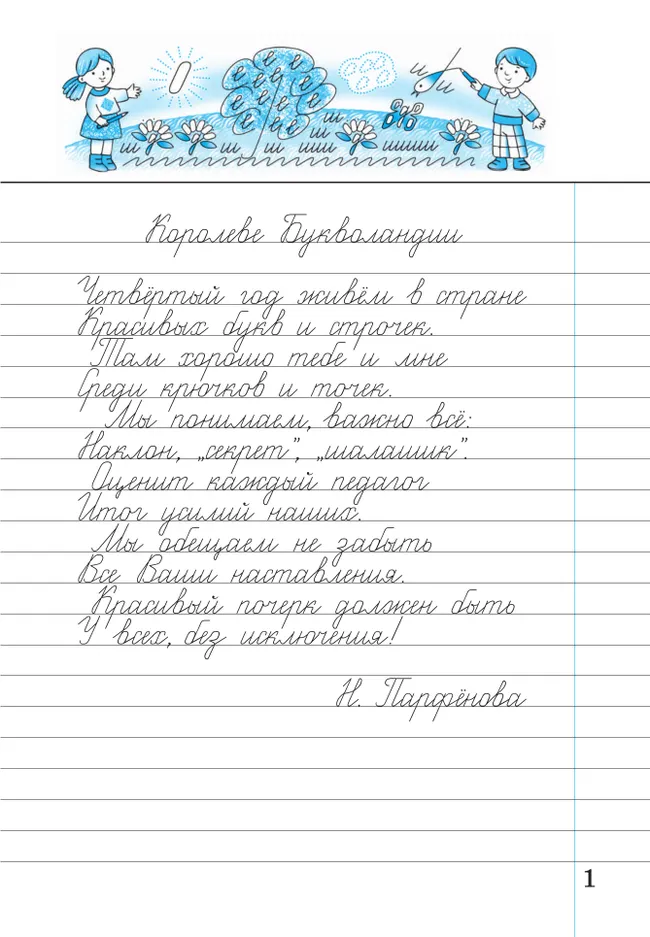 Королеве Букволандии
Четвёртый год живём в стране
Красивых букв и строчек.
Там хорошо тебе и мне
Среди крючков и точек.
Мы понимаем, важно всё:
Наклон, „секрет”, „шалашик”.
Оценит каждый педагог
Итог усилий наших.
Мы обещаем не забыть
Все Ваши наставления.
Красивый почерк должен быть
У всех, без исключения!
Н. Парфёнова
1